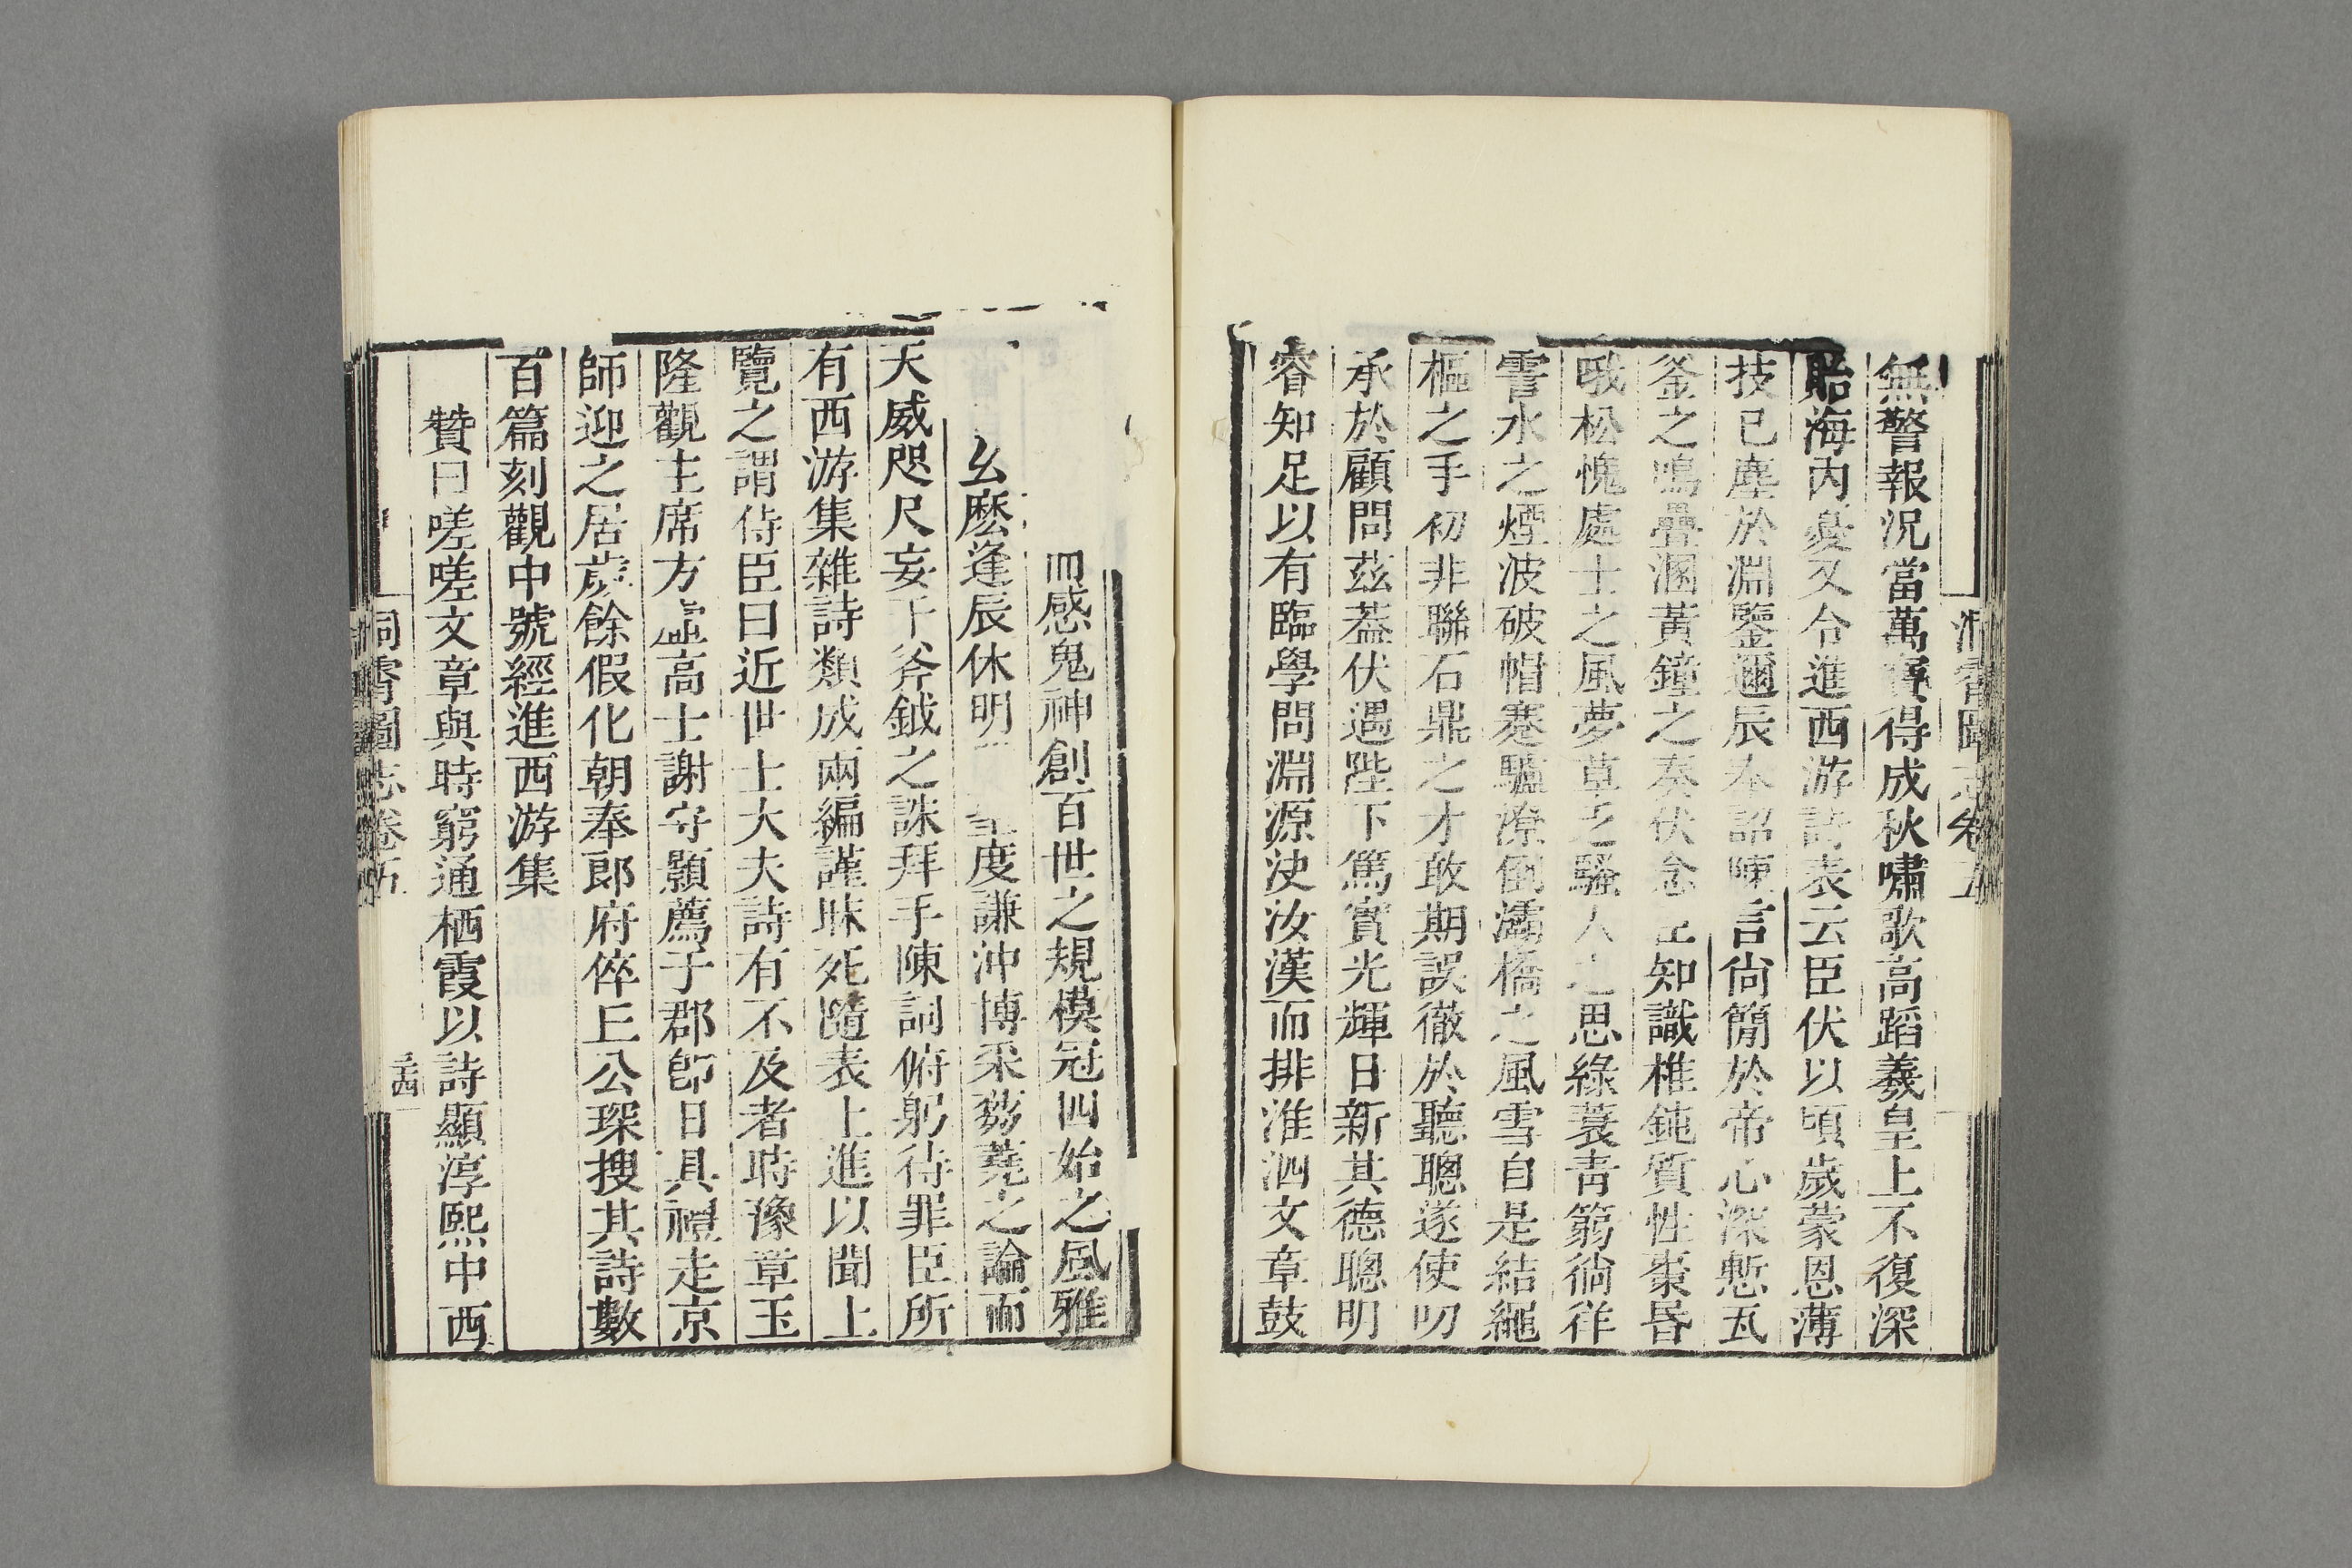 無警報況當萬寶得成秋嘯歌高蹈羲皇上不復深
貽海內憂又令進西游詩表云臣伏以頃歲蒙恩薄
技已塵於淵鑒邇辰奉詔陳言尙簡於帝心深慙瓦
釜之鳴疊溷黃鐘之奏伏念臣知識椎鈍質性棗昏
哦松愧處士之風夢草乏騷人之思綠蓑靑篛徜徉
霅水之煙波破帽蹇驢潦倒灞橋之風雪自是結繩
樞之手初非聯石鼎之才敢期誤徹於聽聰遂使叨
承於顧問茲葢伏遇陛下篤實光輝日新其德聰明
睿知足以有臨學問淵源決汝漢而排淮泗文章鼓
感鬼神創百世之規模冠四始之風雅
幺麽逢辰休明 度謙沖博采蒭蕘之論而
天威咫尺妄干斧鉞之誅拜手陳詞俯躬待罪臣所
有西游集雜詩類成兩編謹昧死隨表上進以聞上
覽之謂侍臣曰近世士大夫詩有不及者時豫章玉
隆觀主席方虛高士謝守顥薦于郡卽日具禮走京
師迎之居歲餘假化朝奉郎府倅丘公琛搜其詩數
百篇刻觀中號經進西游集
贊曰嗟嗟文章與時窮通栖霞以詩顯淳熙中西
洞霄圖志卷五